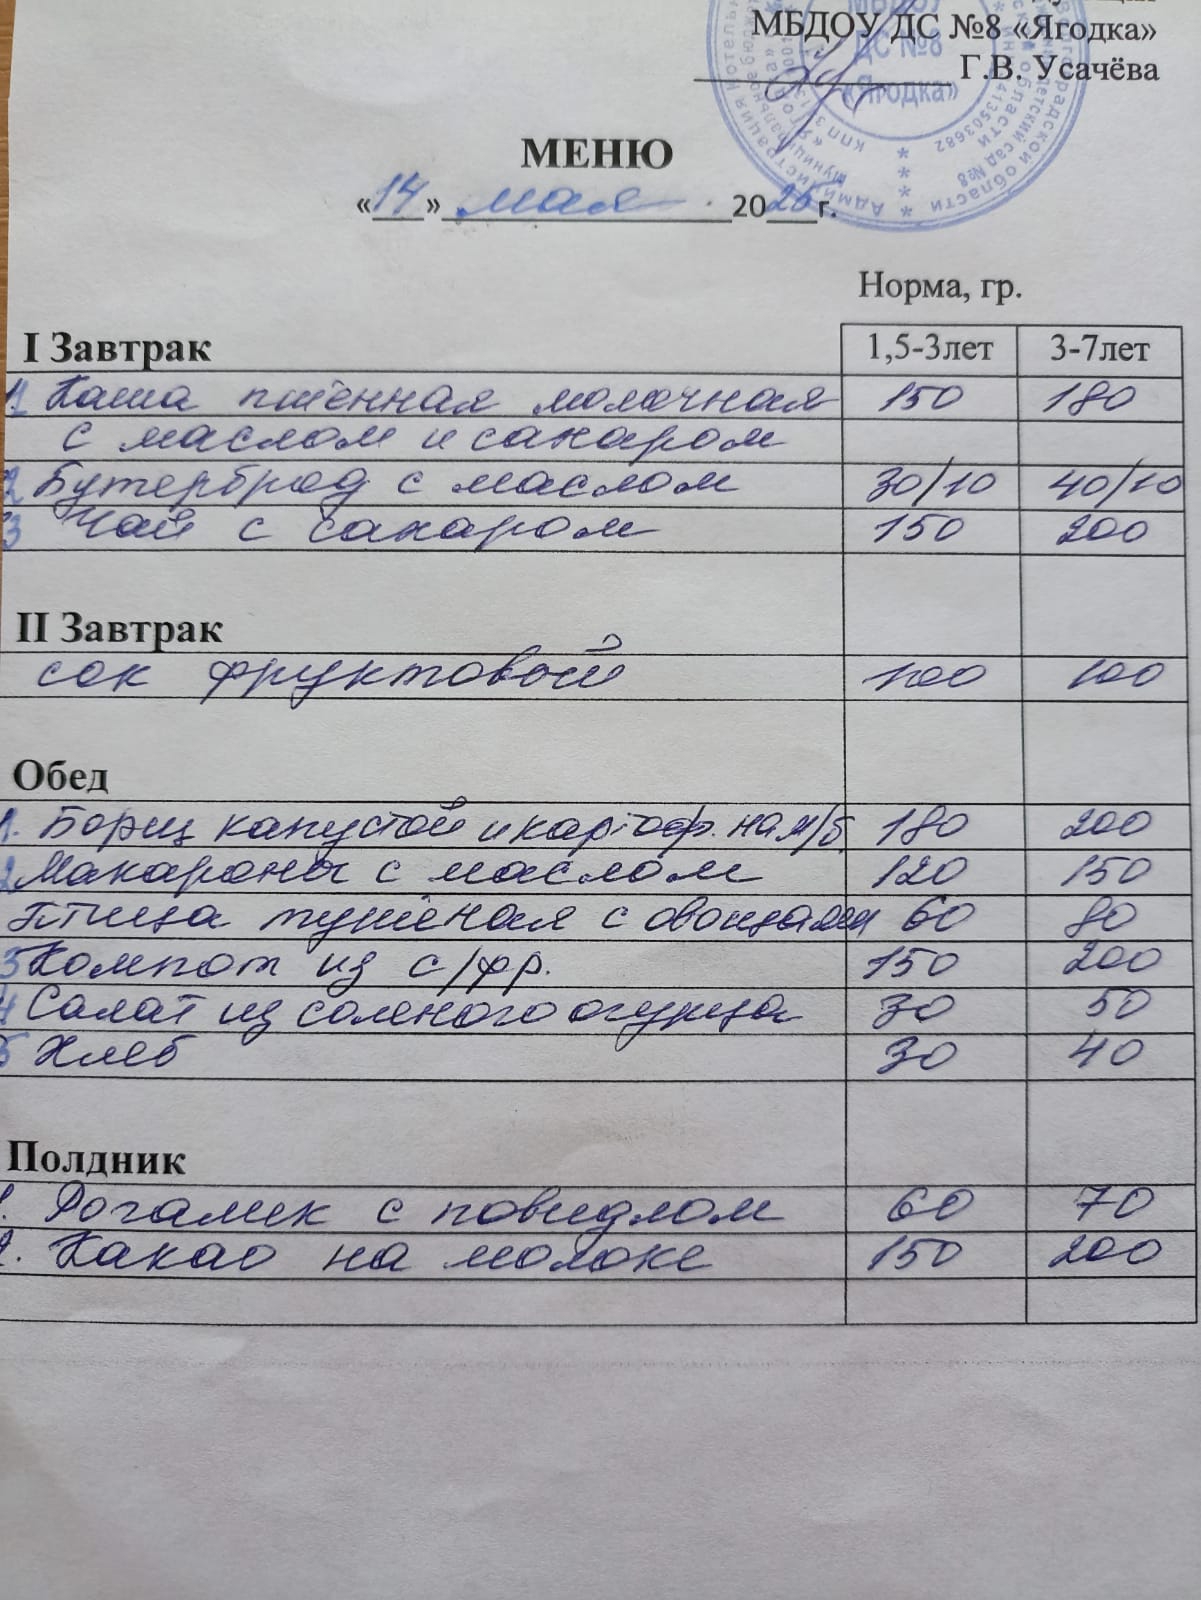 МБДОУ ДС №8 «Ягодка»
Г.В. Усачёва
МБДОУ
ДС №8
«Ягодка»
МЕНЮ
«14» мая 2026г.
Норма, гр.
I Завтрак 1,5-3лет 3-7лет
1 Каша пшённая молочная 150 180
с маслом и сахаром
2 Бутерброд с маслом 30/10 40/10
3 Чай с сахаром 150 200
II Завтрак
сок фруктовый 100 100
Обед
1. Борщ капустой и картоф. на м/б. 180 200
2 Макароны с маслом 120 150
Птица тушёная с овощами 60 80
3 Компот из с/фр. 150 200
4 Салат из соленого огурца 30 50
5 Хлеб 30 40
Полдник
1. Рогалик с повидлом 60 70
2. Какао на молоке 150 200